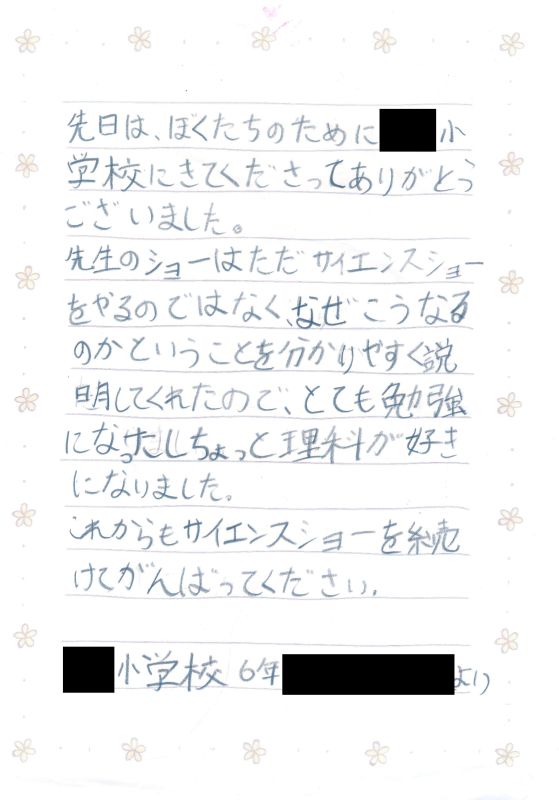 先日は、ぼくたちのために 小
学校にきてくださってありがとう
ございました。
先生のショーはただサイエンスショー
をやるのではなく、なぜこうなる
のかということを分かりやすく説
明してくれたので、とても勉強
になったしちょっと理科が好き
になりました。
これからもサイエンスショーを続
けてがんばってください。
小学校 6年 より